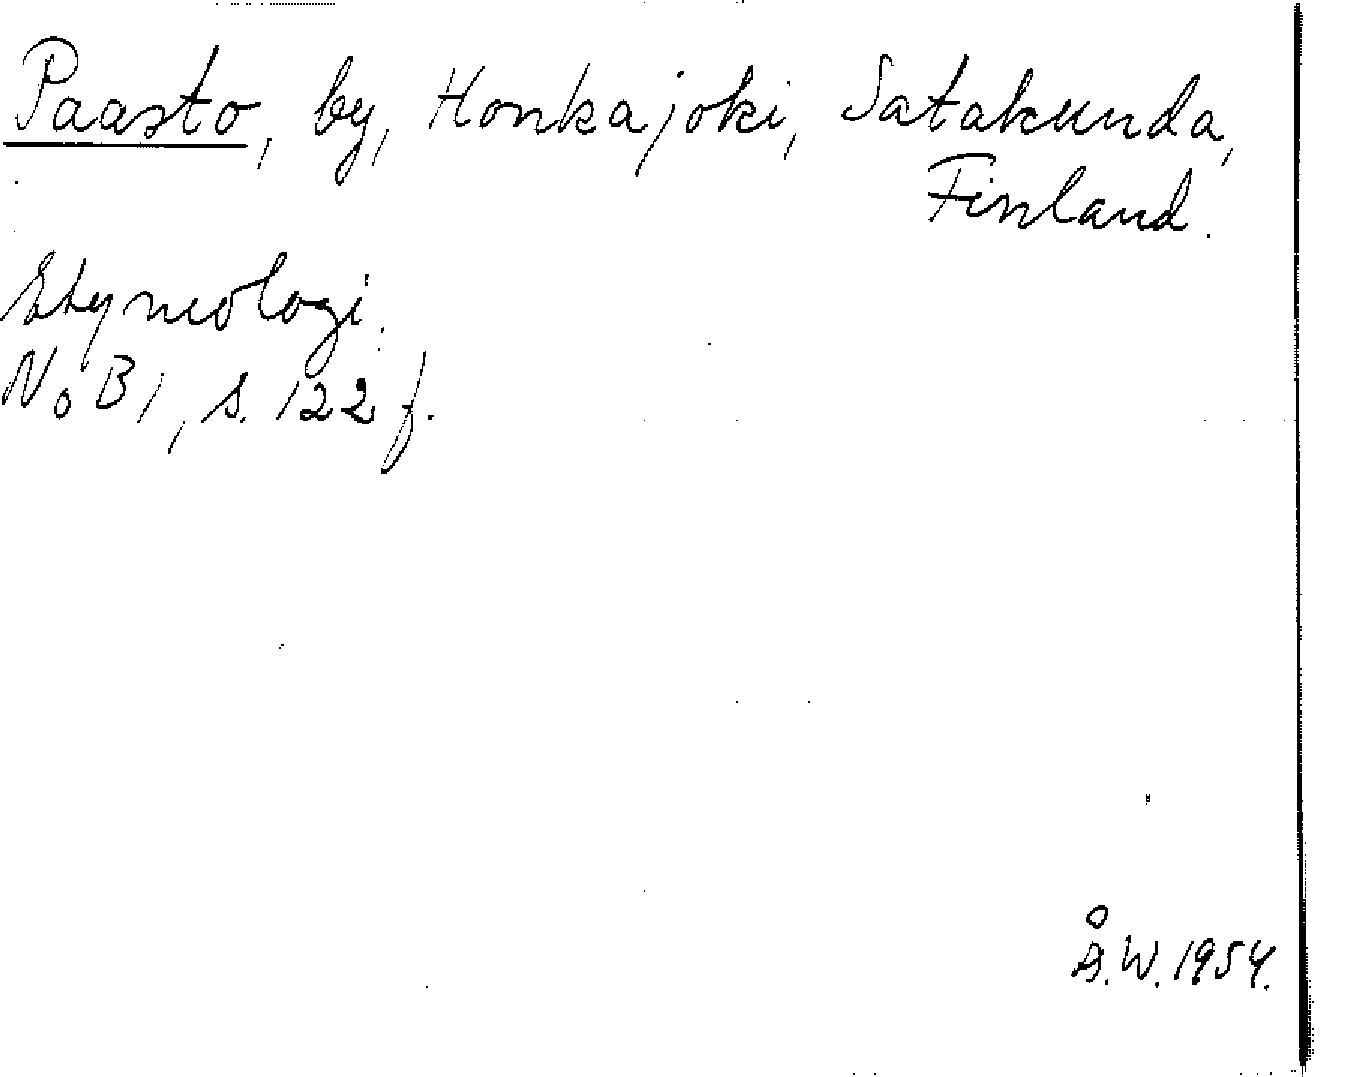 Paasto, by, Honkajoki, Satakunda,
Finland.
Etymologi.
NoB 1, s. 122 f.
Å.W. 1954.